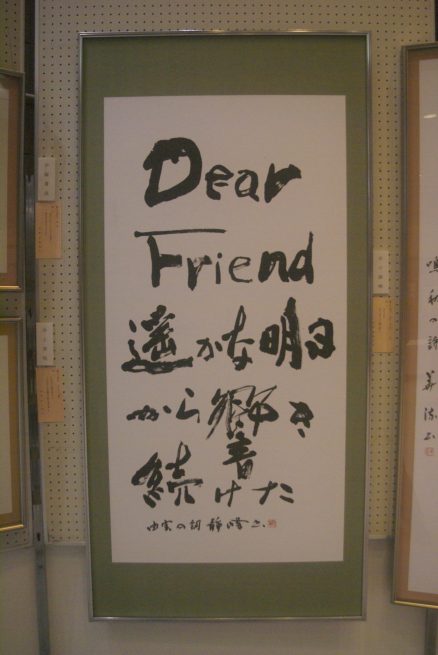 Dear
Friend
遥かな明日
から響き
続けた
由実の詞 静